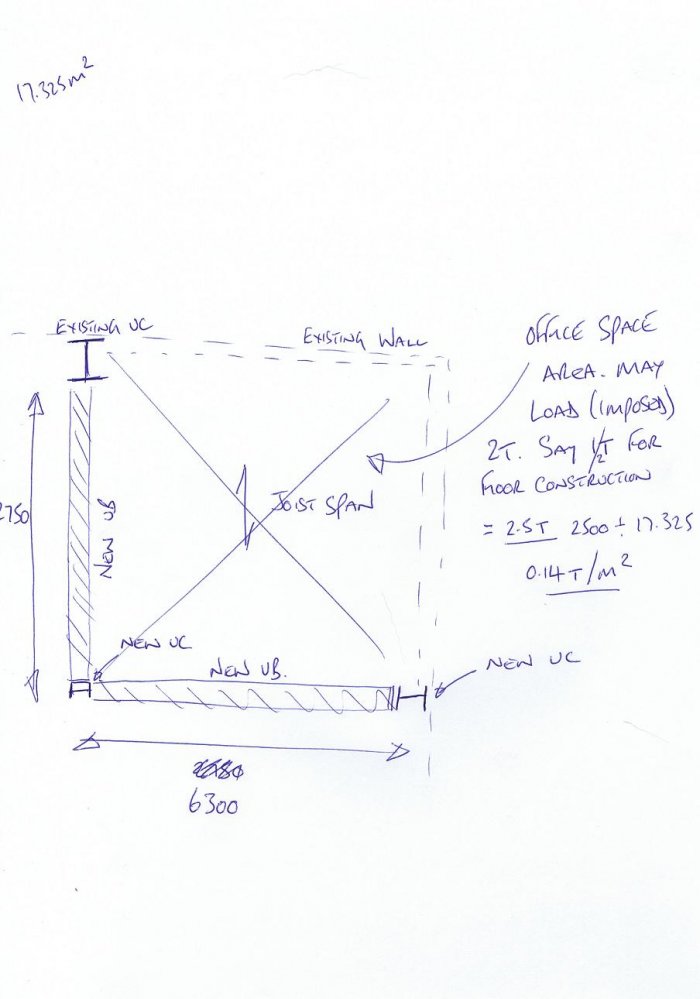 17.325m²
EXISTING UC
EXISTING WALL
OFFICE SPACE
AREA. MAY
LOAD (IMPOSED)
2T. SAY 1/2T FOR
FLOOR CONSTRUCTION
= 2.5T 2500 ÷ 17.325
0.14T/m²
2750
NEW UB
JOIST SPAN
NEW UC
NEW UB.
NEW UC
6300